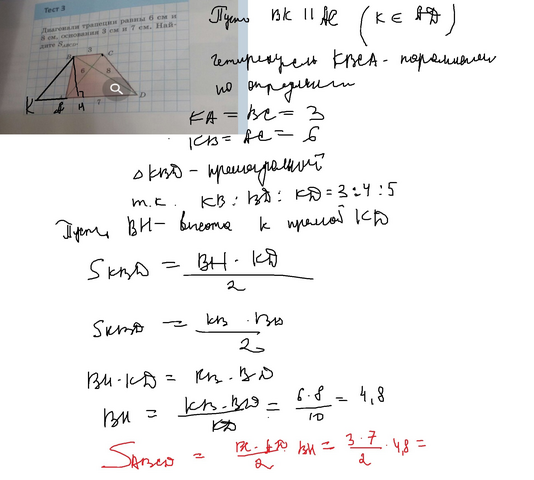 Тест 3
Диагонали трапеции равны 6 см и
8 см, основания 3 см и 7 см. Най-
дите S
Пусть BK || AC (K ∈ AD)
четырехуг KBCA - параллелограмм
по определению
KA = BC = 3
KB = AC = 6
△KBD - прямоугольный
т.к. KB : BD : KD = 3:4:5
Пусть BH - высота к прямой KD
S KBD = BH · KD / 2
S KBD = KB · BD / 2
BH · KD = KB · BD
BH = KB · BD / KD = 6·8 / 10 = 4,8
S ABCD = BC · AD / 2 · BH = 3·7 / 2 · 4,8 =
B 3 C
6 8
K A H 7 D